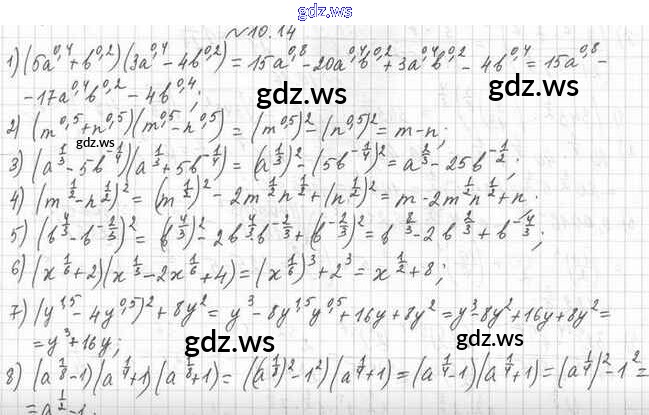 gdz.ws
№10.14
1) (5a^0,4 + b^0,2)(3a^0,4 - 4b^0,2) = 15a^0,8 - 20a^0,4b^0,2 + 3a^0,4b^0,2 - 4b^0,4 = 15a^0,8 -
- 17a^0,4b^0,2 - 4b^0,4;
gdz.ws
gdz.ws
2) (m^0,5 + n^0,5)(m^0,5 - n^0,5) = (m^0,5)^2 - (n^0,5)^2 = m - n;
gdz.ws
3) (a^1/3 - 5b^-1/4)(a^1/3 + 5b^-1/4) = (a^1/3)^2 - (5b^-1/4)^2 = a^2/3 - 25b^-1/2;
4) (m^1/2 - n^1/2)^2 = (m^1/2)^2 - 2m^1/2n^1/2 + (n^1/2)^2 = m - 2m^1/2n^1/2 + n.
5) (b^4/3 - b^-2/3)^2 = (b^4/3)^2 - 2b^4/3b^-2/3 + (b^-2/3)^2 = b^8/3 - 2b^2/3 + b^-4/3;
6) (x^1/6 + 2)(x^1/3 - 2x^1/6 + 4) = (x^1/6)^3 + 2^3 = x^1/2 + 8;
7) (y^1,5 - 4y^0,5)^2 + 8y^2 = y^3 - 8y^1,5y^0,5 + 16y + 8y^2 = y^3 - 8y^2 + 16y + 8y^2 =
= y^3 + 16y;
gdz.ws
gdz.ws
8) (a^1/8 - 1)(a^1/4 + 1)(a^1/8 + 1) = ((a^1/8)^2 - 1^2)(a^1/4 + 1) = (a^1/4 - 1)(a^1/4 + 1) = (a^1/4)^2 - 1^2 =
= a^1/2 - 1.
gdz.ws